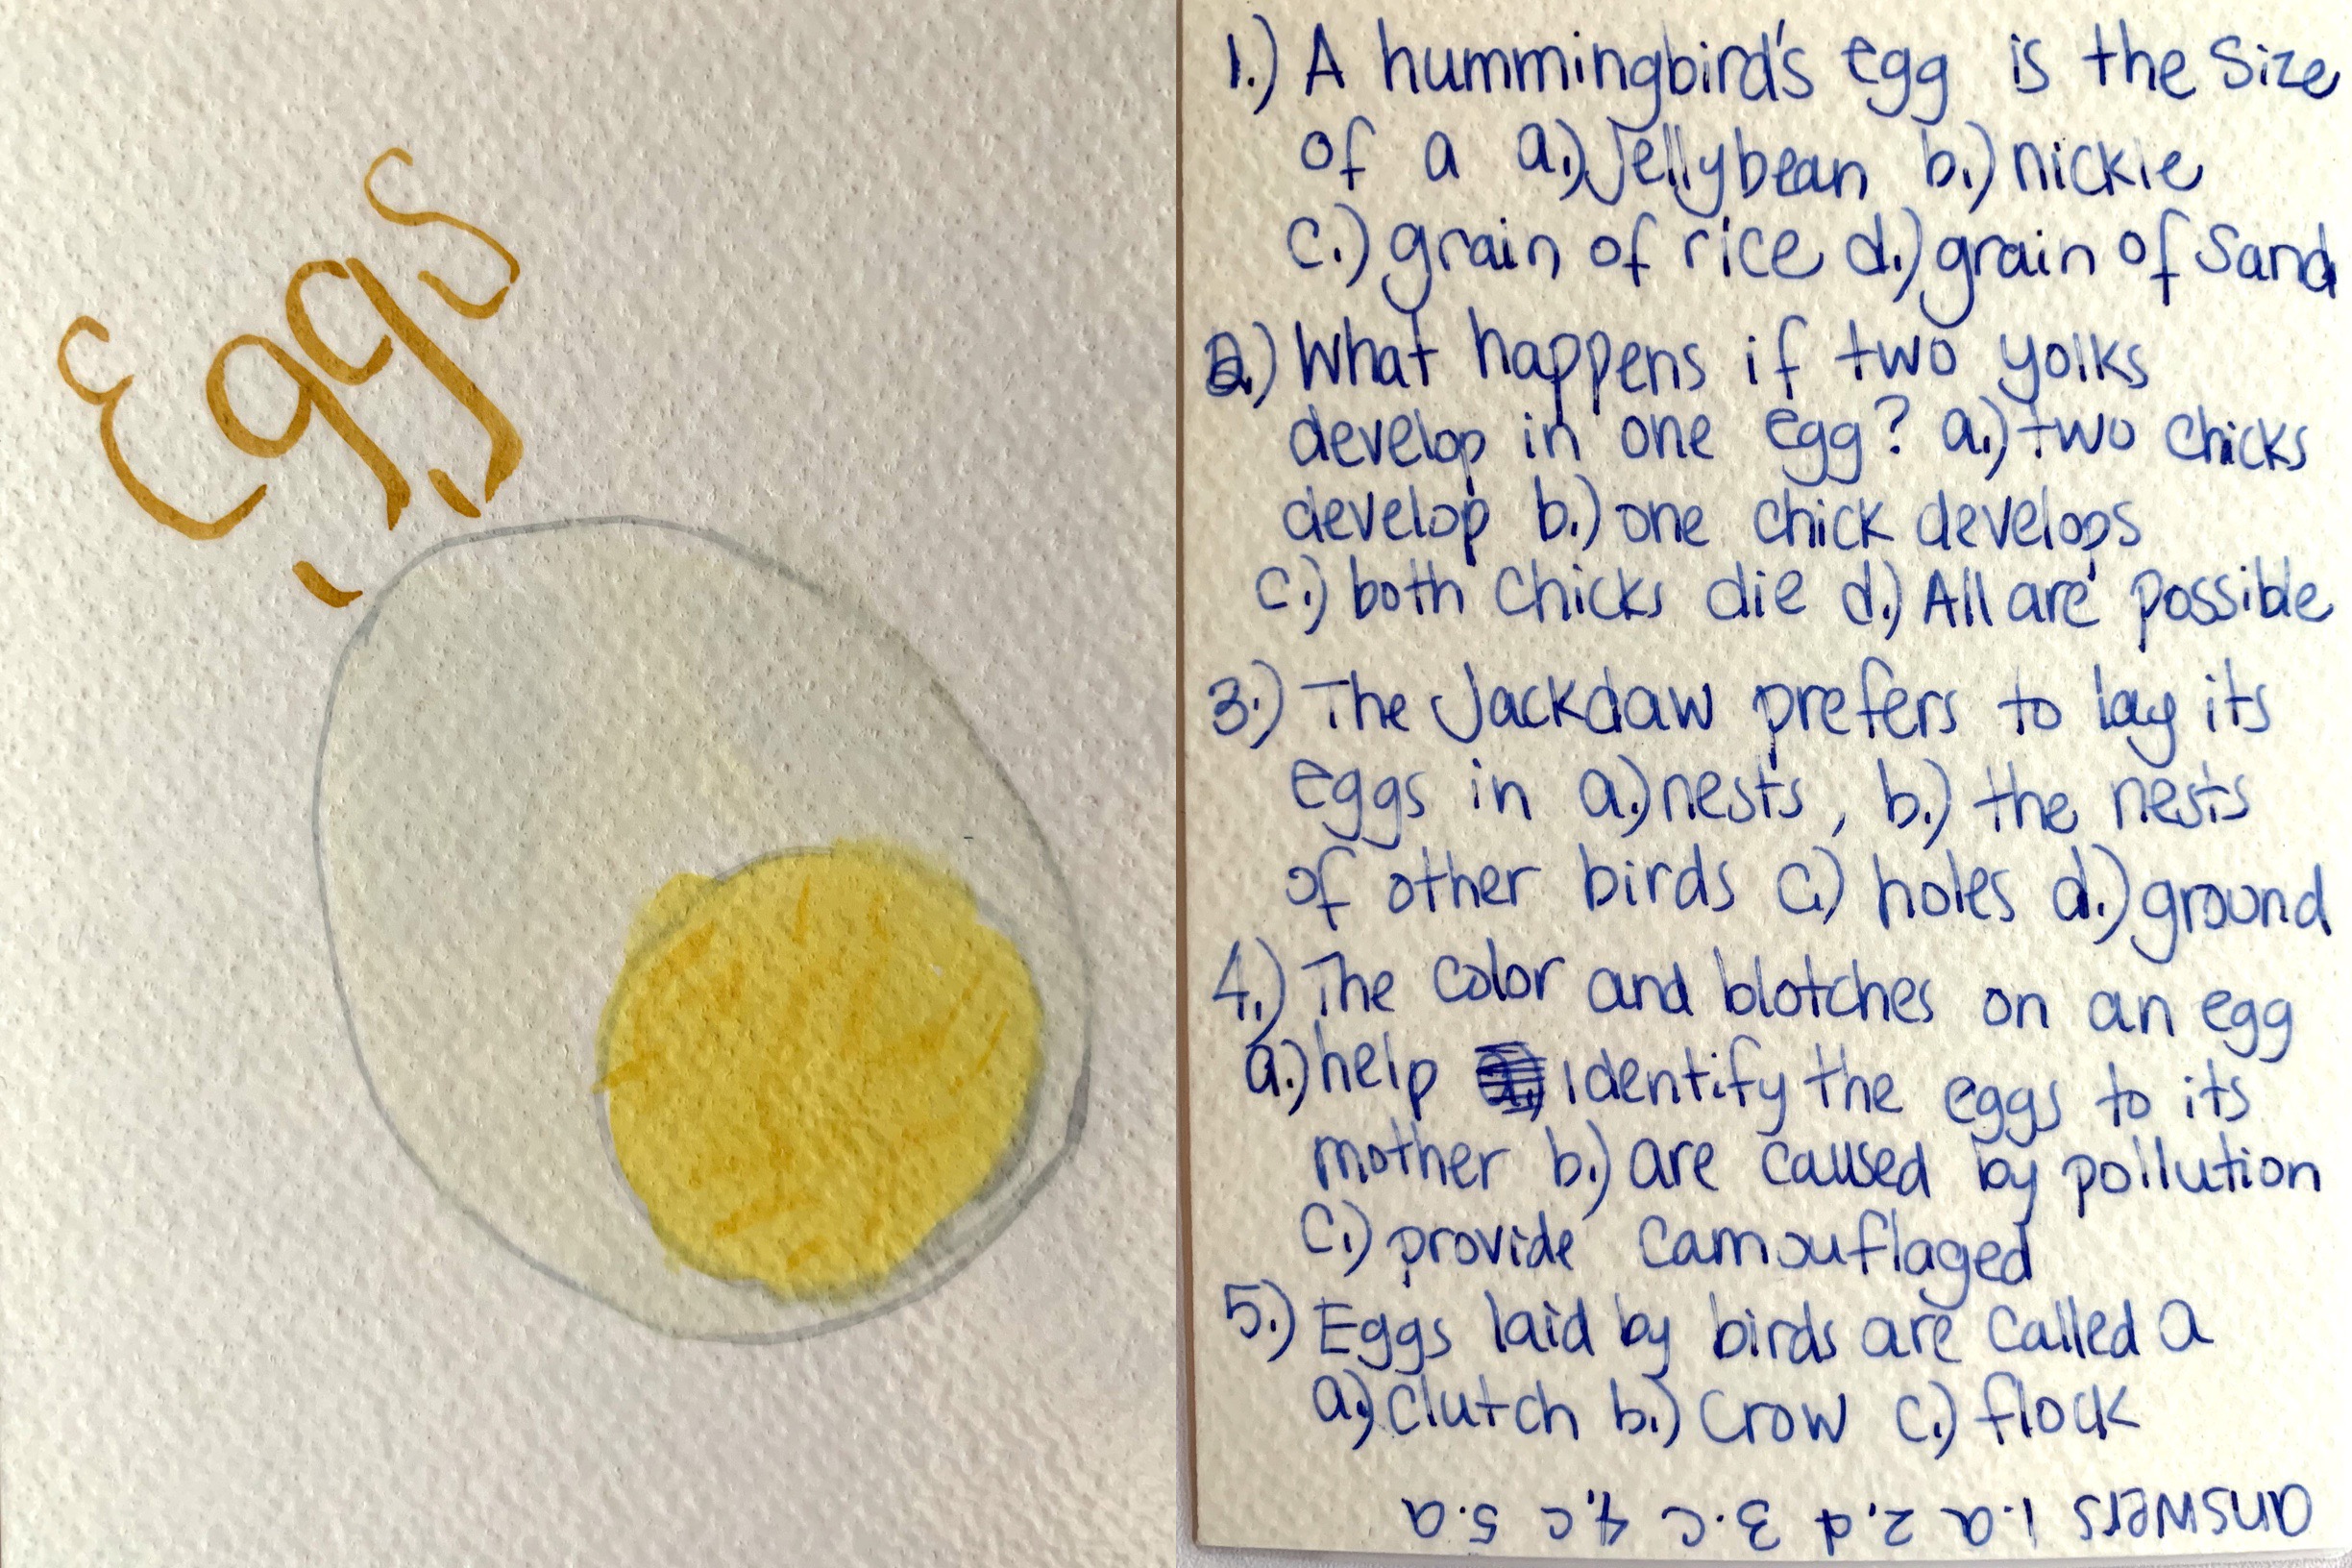 Eggs
1.) A hummingbird's egg is the Size
of a a.) Jellybean b.) nickle
c.) grain of rice d.) grain of Sand
2.) What happens if two yolks
develop in one egg? a.) two chicks
develop b.) one chick develops
c.) both chicks die d.) All are possible
3.) The Jackdaw prefers to lay its
eggs in a.) nests, b.) the nests
of other birds c.) holes d.) ground
4.) The color and blotches on an egg
a.) help identify the eggs to its
mother b.) are caused by pollution
c.) provide camouflaged
5.) Eggs laid by birds are called a
a.) clutch b.) crow c.) flock
answers 1.a 2.d 3.c 4.c 5.a